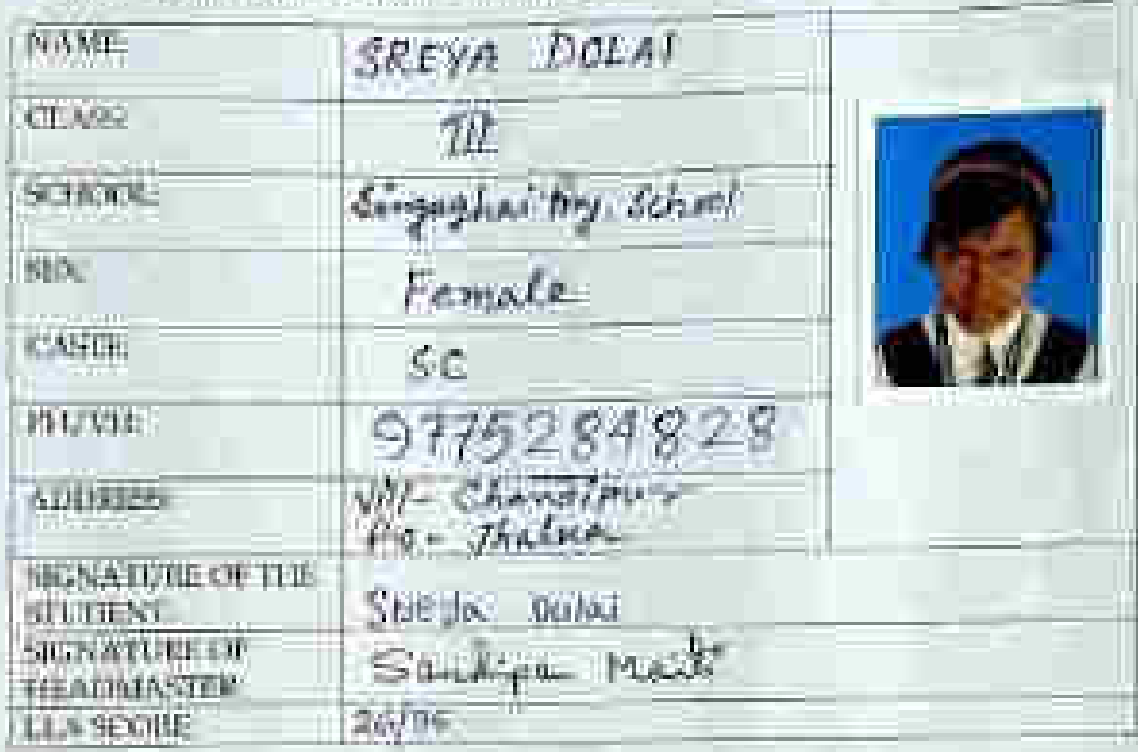 NAME: SREYA DOLAI
CLASS: III
SCHOOL: Pry. School
SEX: Female
CASTE: SC
PH/VH: 9775284828
ADDRESS: Vill- Chandipur
Po.- Jhalua
SIGNATURE OF THE STUDENT: Sreya Dolai
SIGNATURE OF HEADMASTER: Sandipan Maiti
SCORE